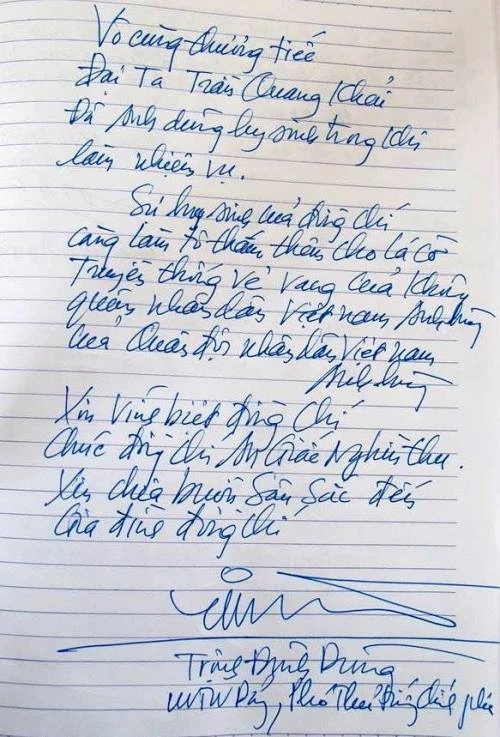 Vô cùng thương tiếc
Đại Tá Trần Quang Khải
Đã Anh dũng hy sinh trong khi
làm nhiệm vụ.
Sự hy sinh của đồng chí
càng làm tô thắm thêm cho lá cờ
Truyền thống vẻ vang của Không
quân nhân dân Việt nam Anh hùng
của Quân đội nhân dân Việt nam
Anh hùng
Xin vĩnh biệt đồng chí
Chúc đồng chí An Giấc Nghìn thu.
Xin chia buồn Sâu Sắc đến
Gia đình đồng chí
Trịnh Đình Dũng
UVTW Đảng, Phó Thủ tướng Chính phủ